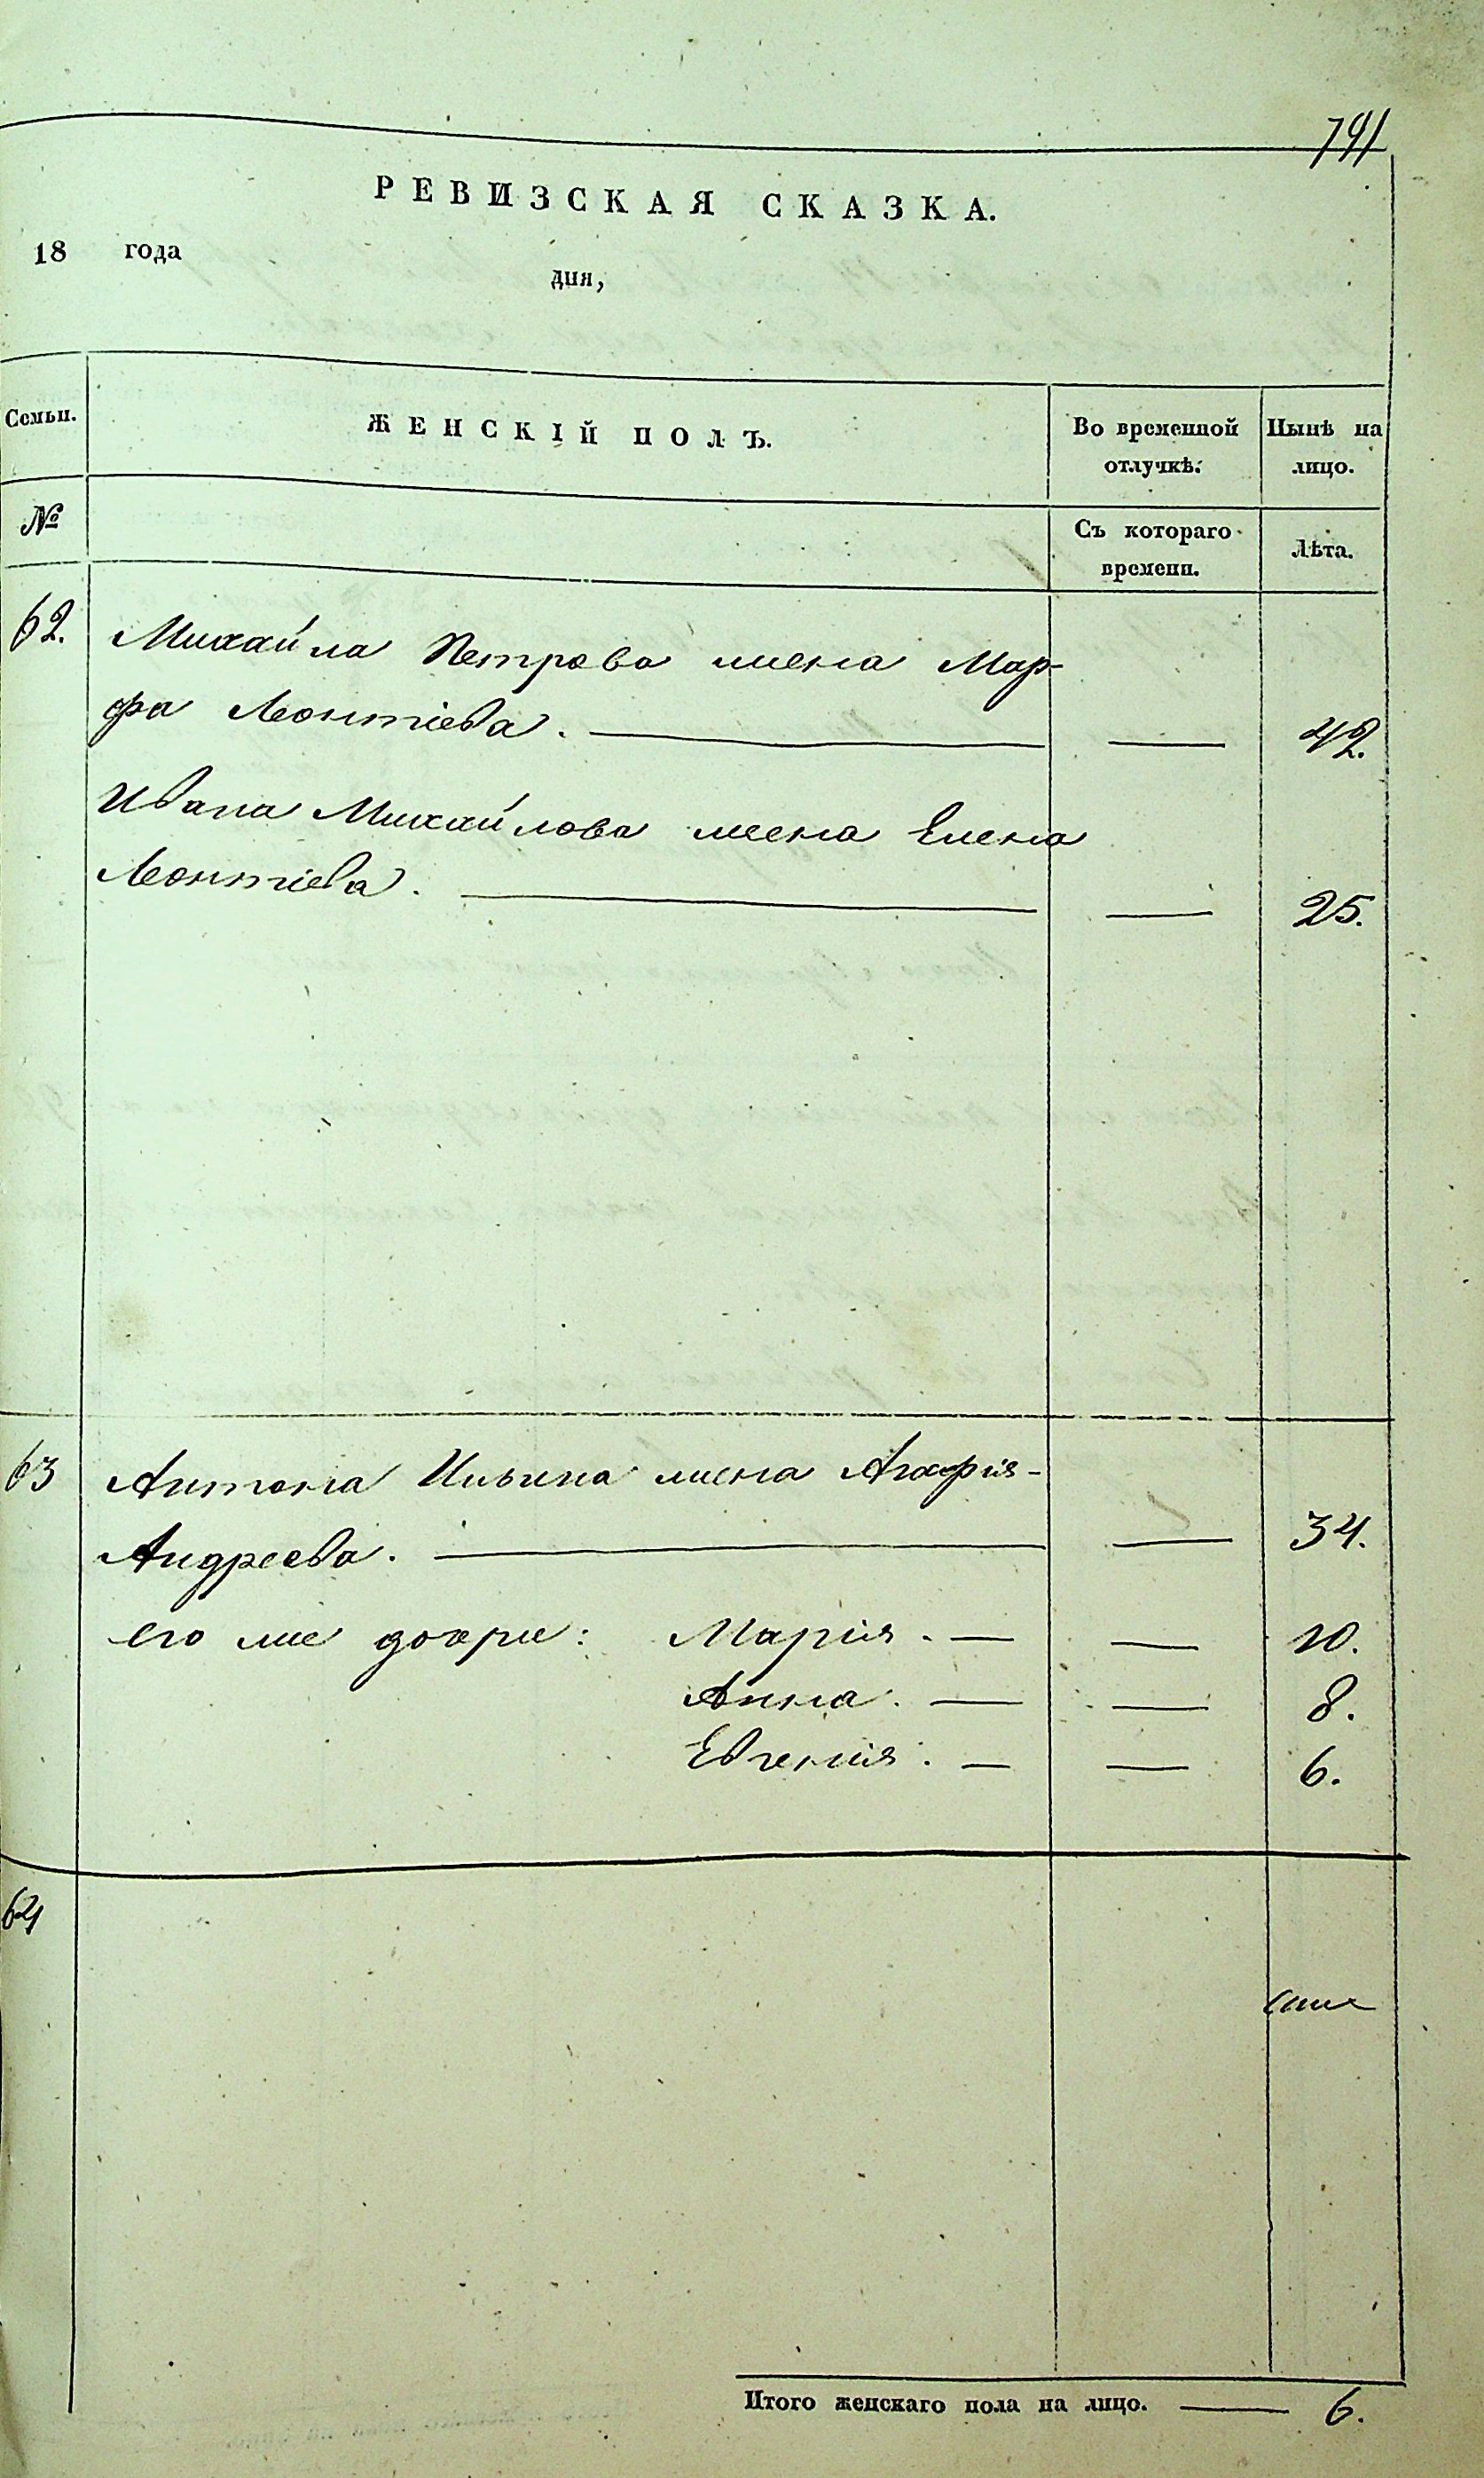 791
РЕВИЗСКАЯ СКАЗКА.
18 года
дня,
Семьи. ЖЕНСКІЙ ПОЛЪ. Во временной отлучкѣ. Нынѣ на лицо.
№ Съ котораго времени. Лѣта.
62. Михайла Петрова жена Мар-
фа Леонтіева. — — 42.
Ивана Михайлова жена Елена
Леонтіева. — — 25.
63 Антона Ильина жена Агафія
Андреева. — — 34.
его же дочри: Марія. — — 10.
Анна. — — 8.
Евгенія. — — 6.
64
Итого женскаго пола на лицо. — 6.